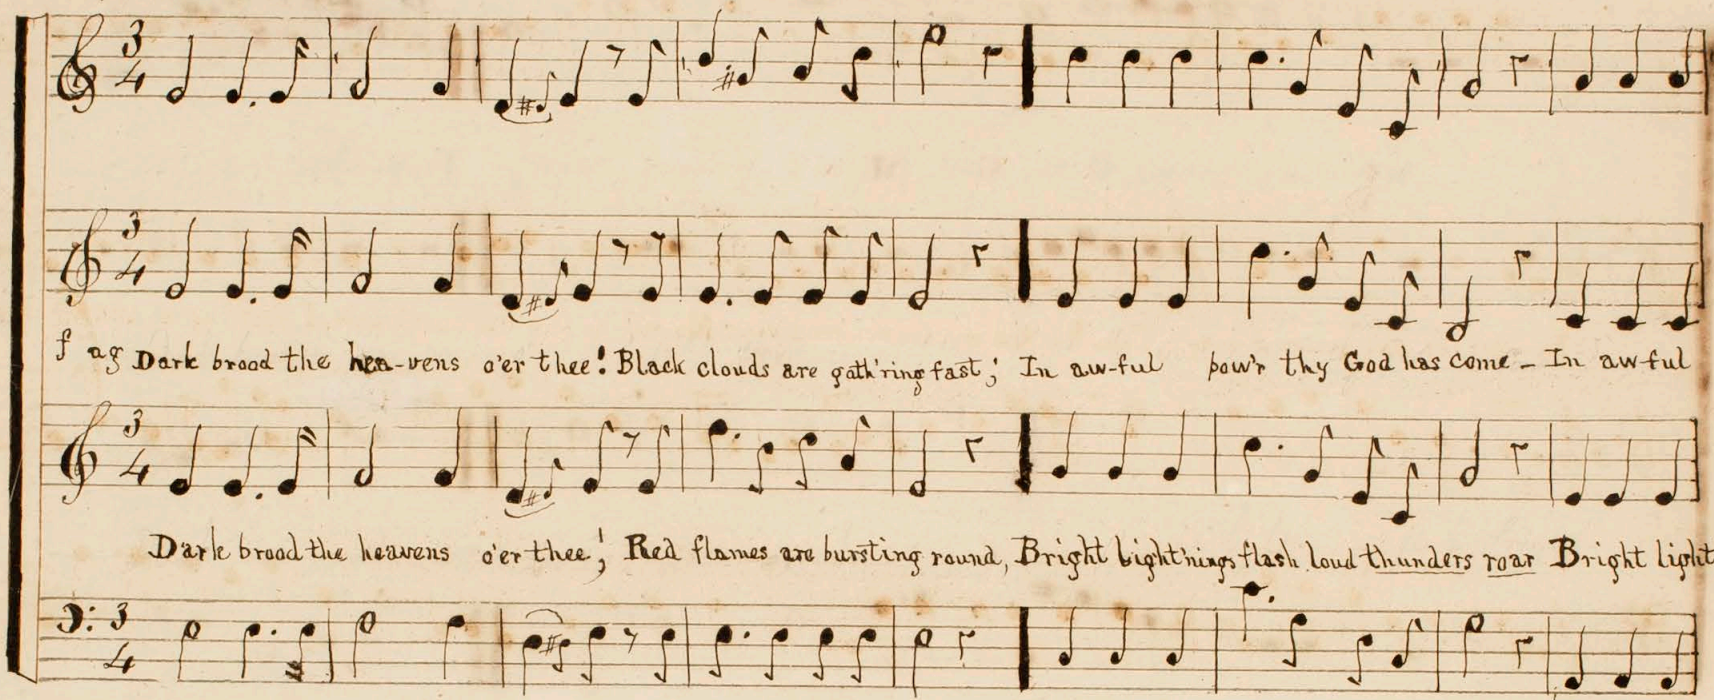 3 4
3 4
f ag Dark brood the hea-vens o'er thee! Black clouds are gath'ring fast; In aw-ful pow'r thy God has come - In aw-ful
3 4
Dark brood the heavens o'er thee; Red flames are bursting round, Bright light'nings flash loud thunders roar Bright light
3 4